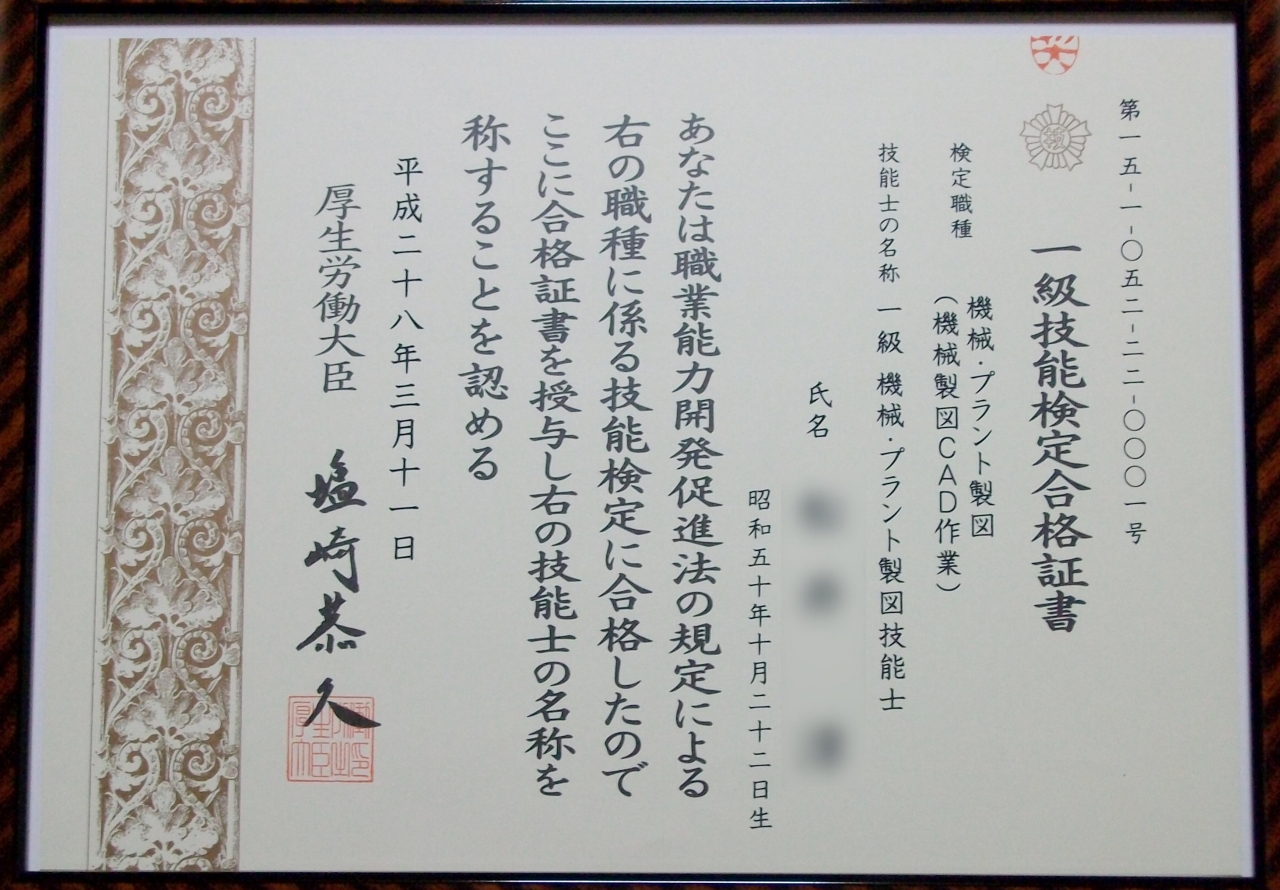 第一五-一-〇五二-二二-〇〇〇一号
一級技能検定合格証書
検定職種 機械・プラント製図
(機械製図CAD作業)
技能士の名称 一級 機械・プラント製図技能士
氏名
昭和五十年十月二十二日生
あなたは職業能力開発促進法の規定による
右の職種に係る技能検定に合格したので
ここに合格証書を授与し右の技能士の名称を
称することを認める
平成二十八年三月十一日
厚生労働大臣 塩崎恭久